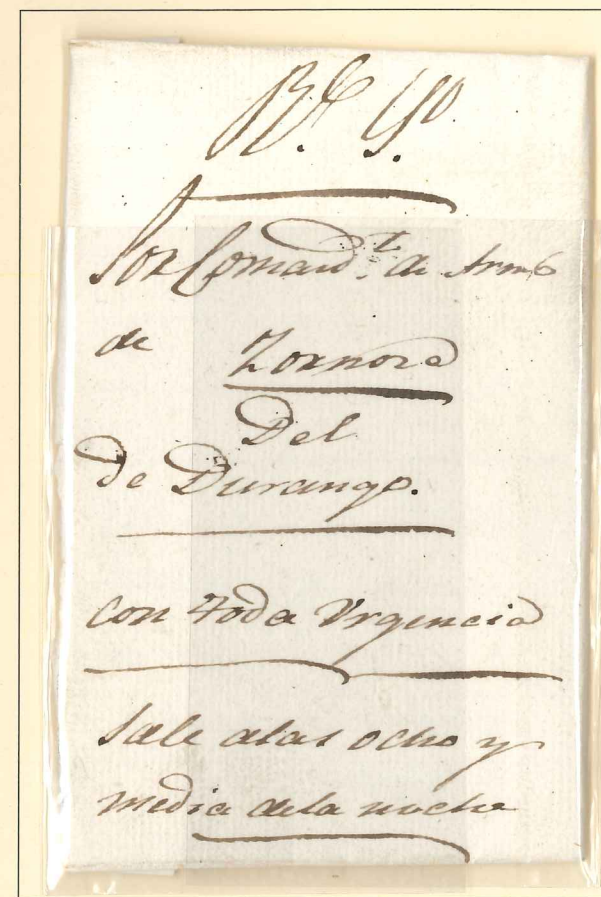 Rl. So.
Sor Comand.t de Arms
de Zornoza
Del
de Durango.
con toda Urgencia
Sale alas ocho y
media dela noche